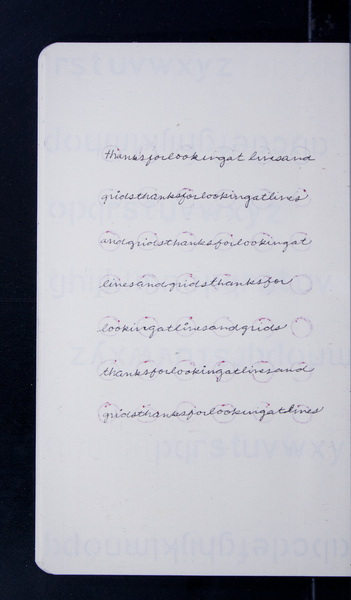 rstuvwxyz
thanksforlookingat linesand
gridsthanksforlookingatlines
andgridsthanksforlookingat
linesandgridsthanksfor
lookingatlinesandgrids
thanksforlookingatlinesand
gridsthanksforlookingatlines
pqrstuvwxy